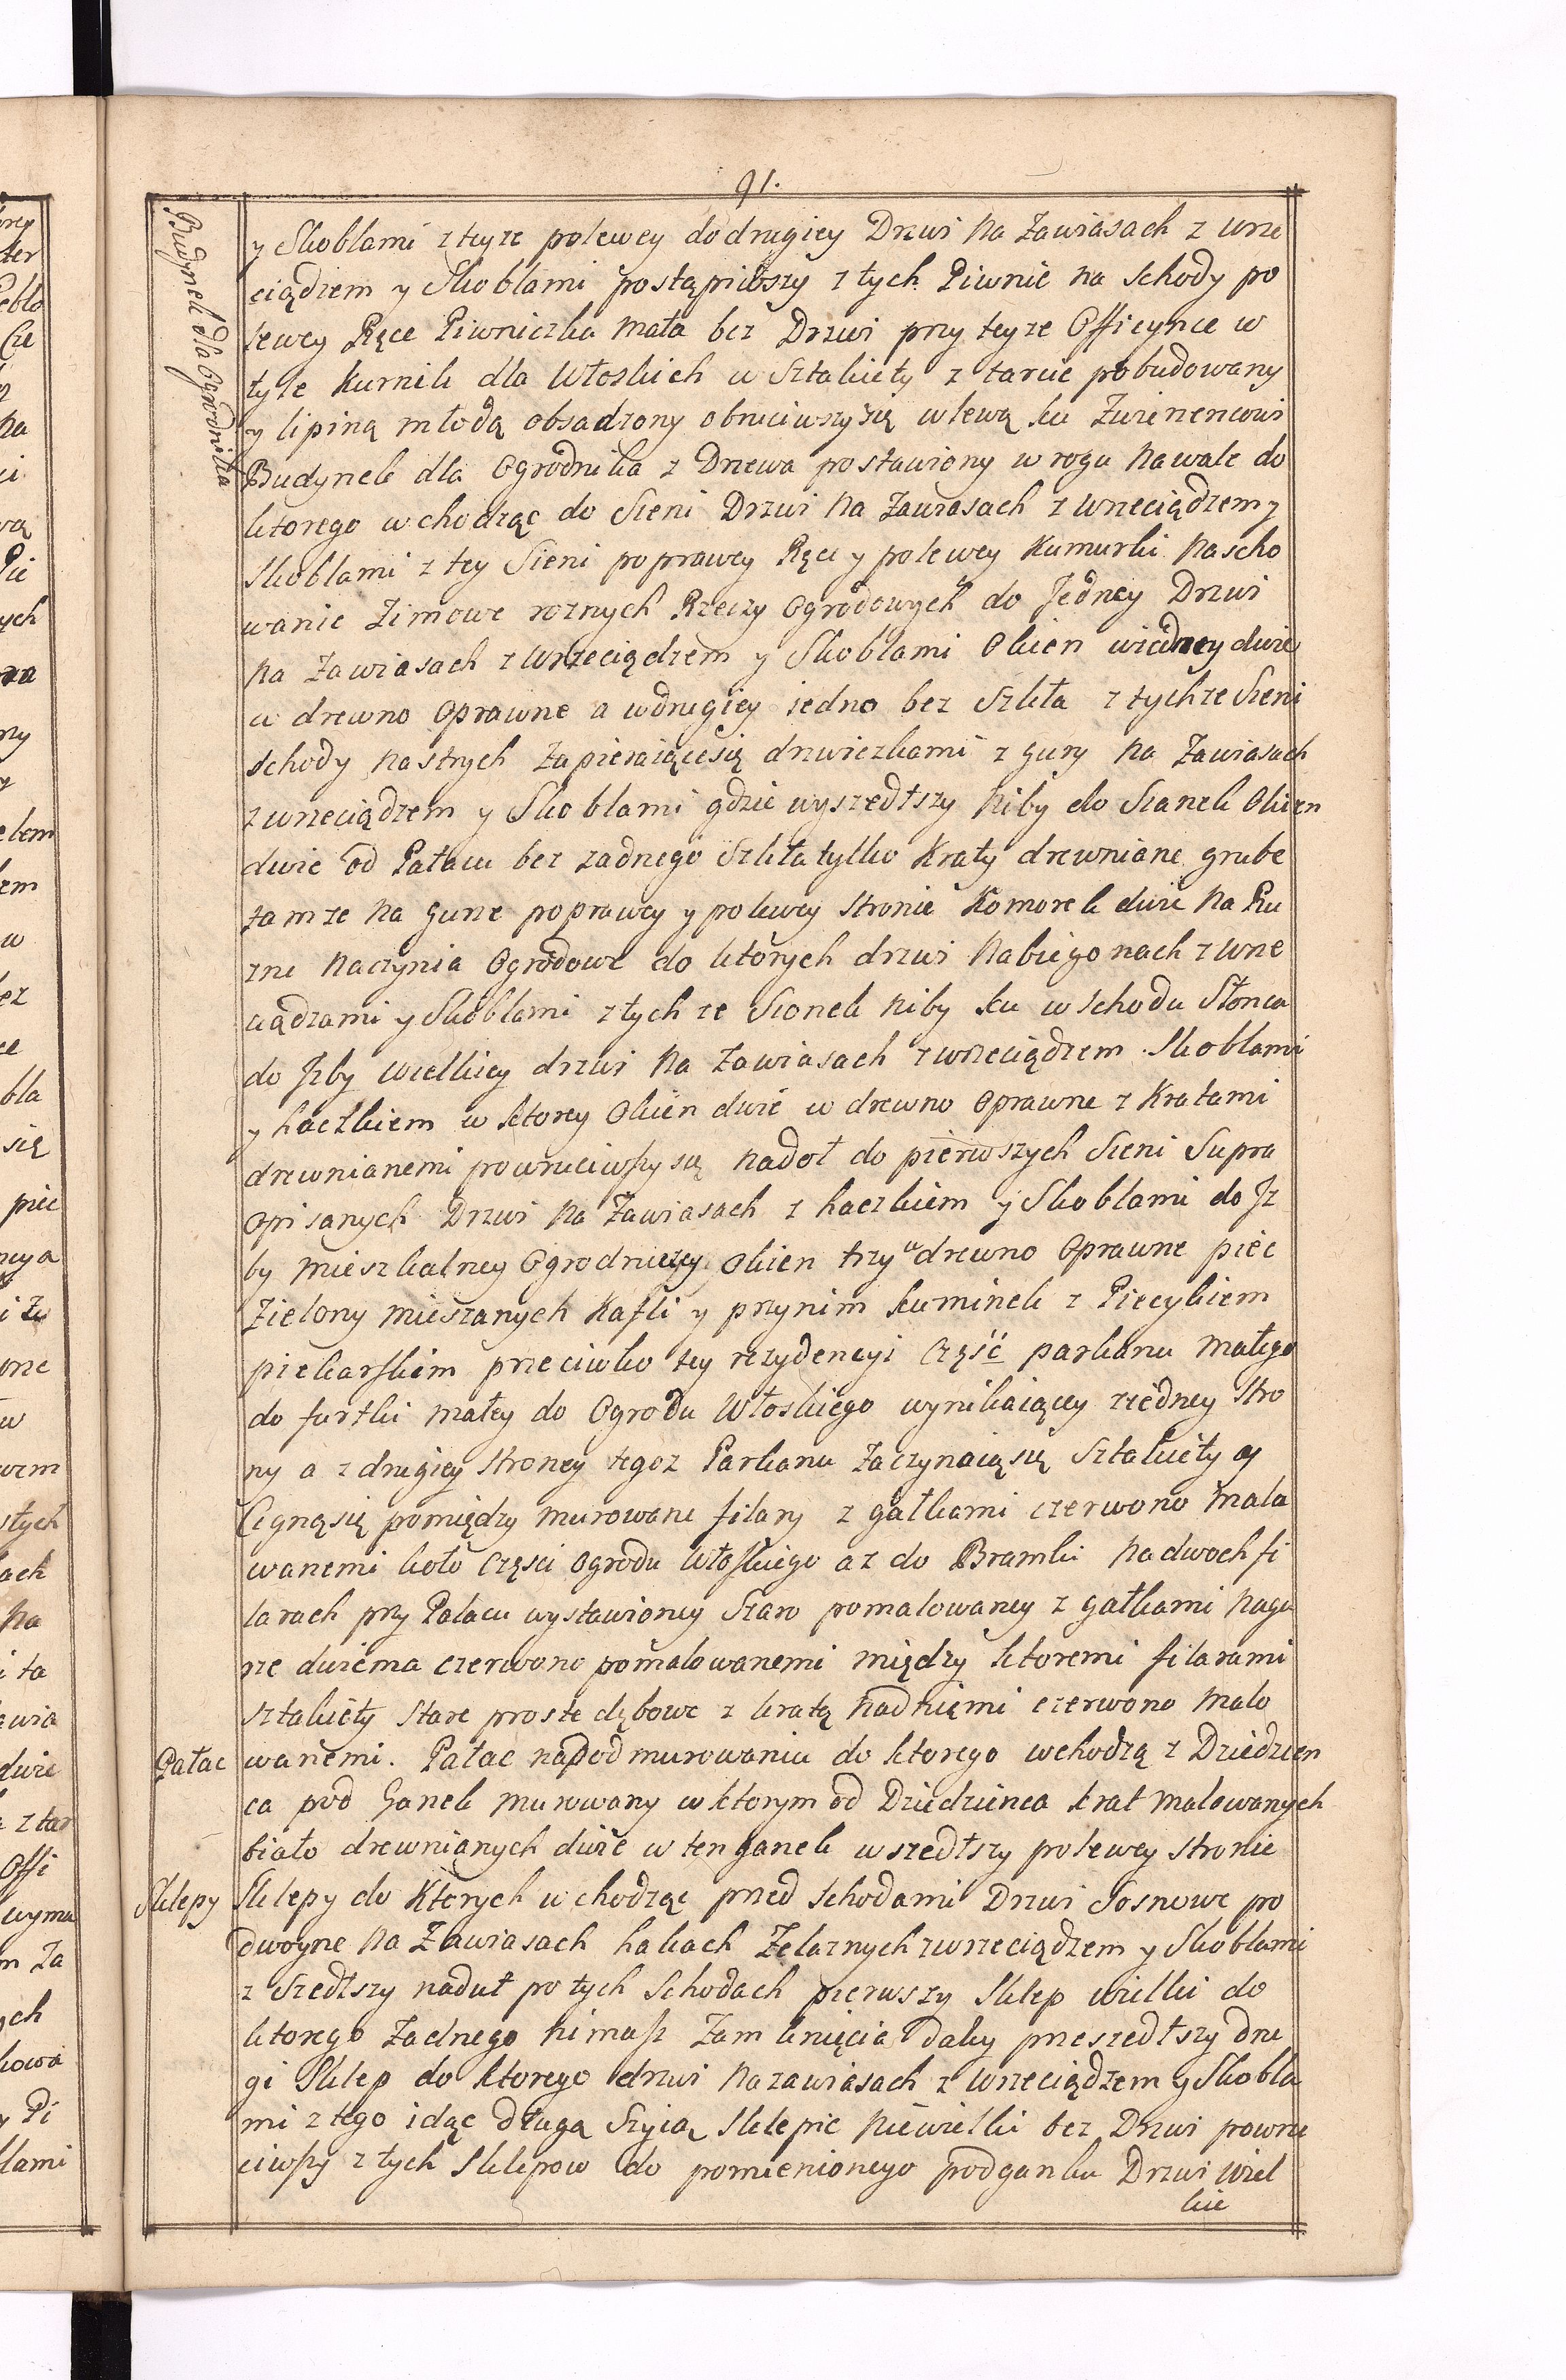 91.
Budynek dla Ogrodnika
y Skoblami z teyże polewey do drugiey Drzwi na Zawiasach z wrze
ciądzem y Skoblami postąpiwszy z tych Piwnic na Schody po
lewey Ręce Piwniczka mała bez Drzwi przy teyże Officynce w
tyle Kurnik dla Włoskich w Sztakiety z tarcic pobudowany
y lipiną młodą obsadzony obruciwszy się w lewą ku Zwirencowi
Budynek dla Ogrodnika z Drzewa postawiony w rogu na wale do
ktorego wchodząc do Sieni Drzwi na Zawiasach z wrzeciądzem y
Skoblami z tey Sieni poprawey Ręce y polewey Kumurki na scho
wanie Zimowe roznych Rzeczy Ogrodowych do Jedney Drzwi
na Zawiasach z wrzeciądzem y Skoblami Okien wiedney dwie
w drewno Oprawne a wdrugiey iedno bez Szkła z tychże Sieni
schody na strych zapieraiące się drzwiczkami z gury na Zawiasach
z wrzeciądzem y Skoblami gdzie wyszedłszy niby do Sianek Okien
dwie od Pałacu bez zadnego Szkła tylko Kraty drewniane grube
tamże na gurze poprawey y polewey stronie Komorek dwie na Ru
zne naczynia Ogrodowe do ktorych drzwi na biegonach z wrze
ciądzami y Skoblami z tych że Sionek niby ku wschodu Słonca
do Jzby wielkiey drzwi na Zawiasach z wrzeciądzem Skoblami
y haczkiem w ktorey Okien dwie w drewno Oprawne z Kratami
drewnianemi powruciwszy się nadoł do pierwszych Sieni Supra
opisanych Drzwi na Zawiasach z haczkiem y Skoblami do Jz
by mieszkalney Ogrodniczey Okien trzy w drewno Oprawne piec
Zielony mieszanych Kafli y przynim kuminek z Piecykiem
piekarskim przeciwko tey rezydencyi część parkanu małego
do furtki małey do Ogrodu Włoskiego wynikaiącey ziedney Stro
ny a z drugiey stroney tegoz Parkanu zaczynaią się Sztakiety y
Ciągną się pomiędzy murowane filary z gałkami czerwono mala
wanemi koło części Ogrodu Włoskiego az do Bramki na dwoch fi
larach przy Pałacu wystawioney Szaro pomalowaney z gałkami nagu
rze dwiema czerwono pomalowanemi między ktoremi filarami
sztakiety stare proste dębowe z kratą nad niemi czerwono malo
Pałac wanemi. Pałac na podmurowaniu do ktorego wchodzą z Dziedzien
ca pod Ganek murowany w ktorym od Dziedzinca krat malowanych
biało drewnianych dwie w ten ganek wszedłszy polewey stronie
Sklepy Sklepy do Ktorych wchodząc przed schodami Drzwi Sosnowe po
dwoyne na Zawiasach hakach Zelaznych z wrzeciądzem y Skoblami
z Szedłszy naduł po tych Schodach pierwszy Sklep wielki do
ktorego Zadnego nimasz Zamknięcia daley przeszedłszy dru
gi Sklep do ktorego drzwi na zawiasach z wrzeciądzem y Skobla
mi z tego idąc długą Szyią Sklepic niewielki bez Drzwi powru
ciwszy z tych Sklepow do pomienionego podganku Drzwi wiel
kie